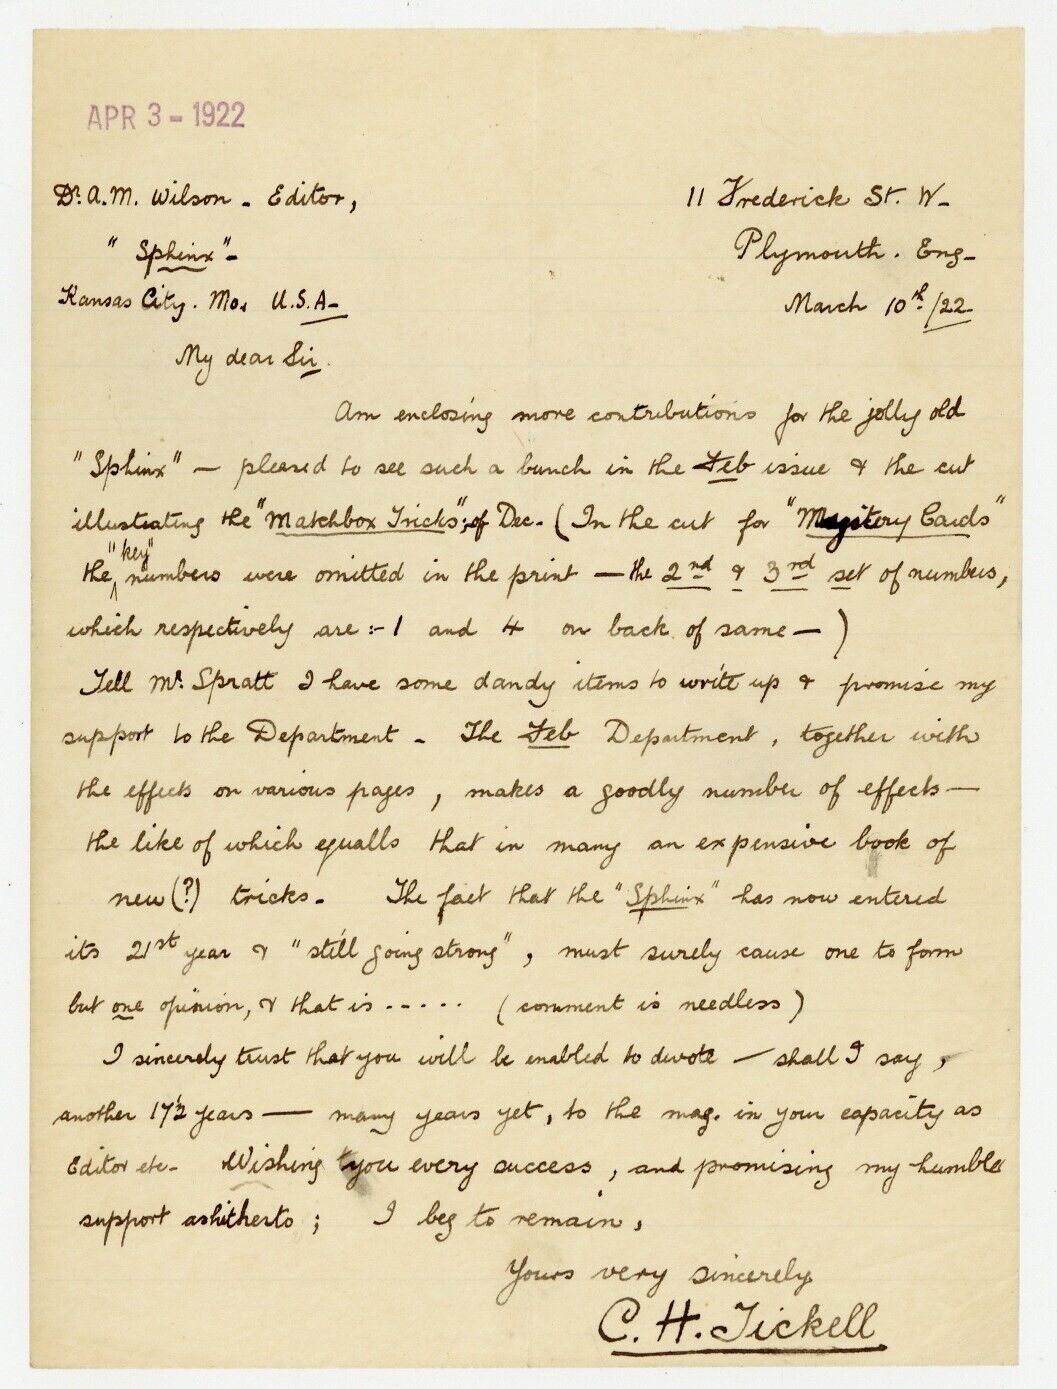 APR 3 - 1922
Dr. A. M. Wilson - Editor,
"Sphinx" -
Kansas City. Mo. U.S.A -
11 Frederick St. W -
Plymouth. Eng -
March 10th/22
My dear Sir.
Am enclosing more contributions for the jolly old
"Sphinx" — pleased to see such a bunch in the Feb issue & the cut
illustrating the "Matchbox Tricks"; of Dec. (In the cut for "Mystery Cards"
the "key" numbers were omitted in the print — the 2nd & 3rd set of numbers,
which respectively are :- 1 and 4 on back of same — )
Tell Mr. Spratt I have some dandy items to write up & promise my
support to the Department - The Feb Department, together with
the effects on various pages, makes a goodly number of effects —
the like of which equalls that in many an expensive book of
new (?) tricks. The fact that the "Sphinx" has now entered
its 21st year & "still going strong", must surely cause one to form
but one opinion, & that is ----- (comment is needless)
I sincerely trust that you will be enabled to devote — shall I say,
another 17½ years — many years yet, to the mag. in your capacity as
Editor etc - Wishing you every success, and promising my humble
support as hitherto; I beg to remain,
Yours very sincerely
C. H. Tickell